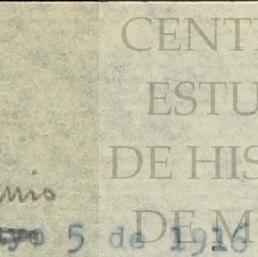 CENT
ESTU
DE HIS
DE M
unio
5 de 1916